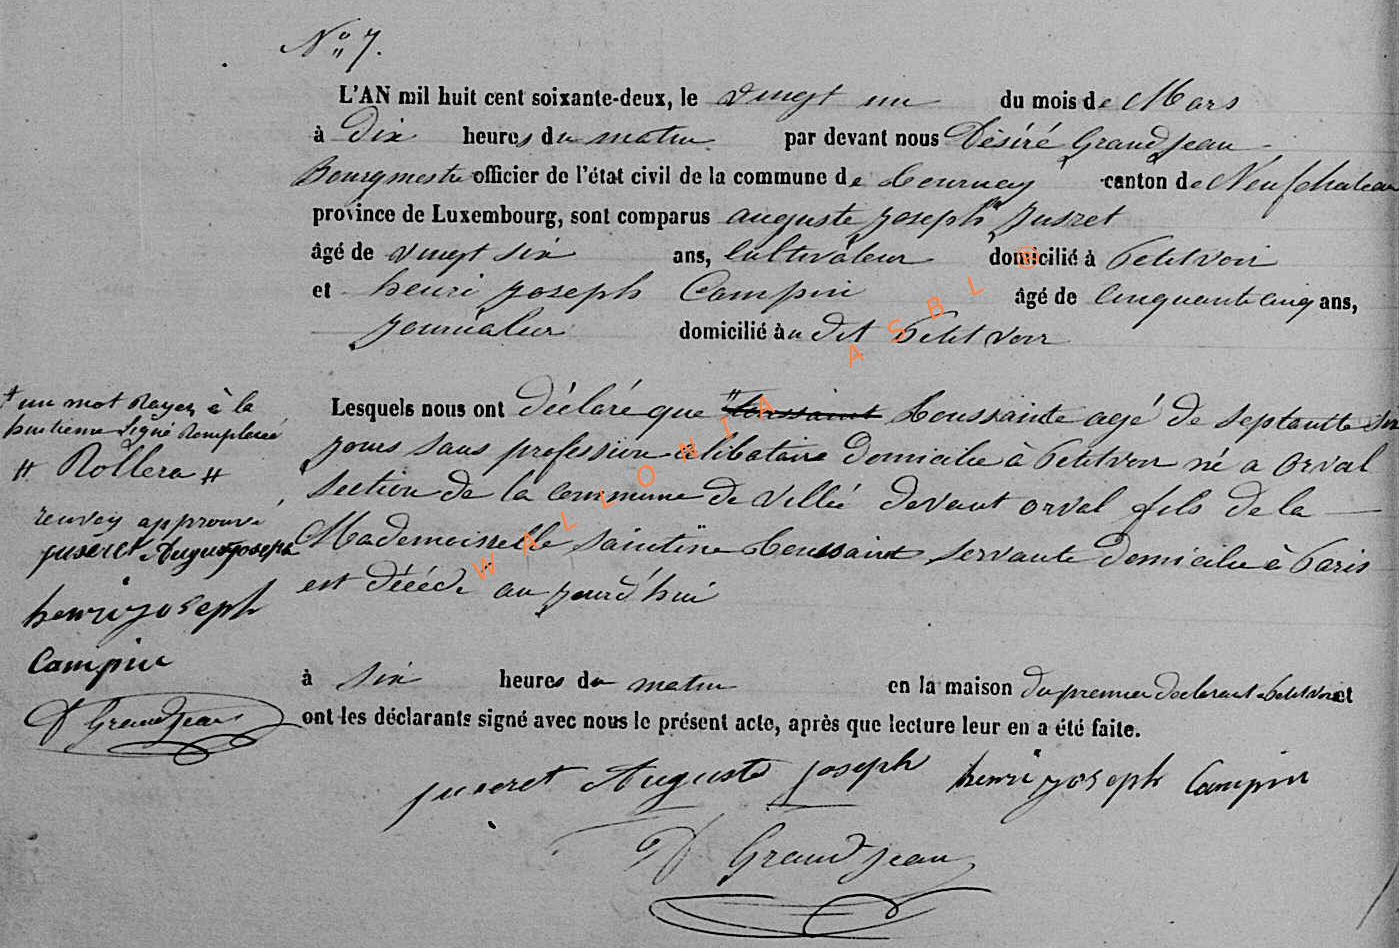 No 7.
L'AN mil huit cent soixante-deux, le vingt un du mois de Mars
à Dix heures du matin par devant nous Désiré Grandjean
Bourgmestre officier de l'état civil de la commune de Tournay canton de Neufchateau
province de Luxembourg, sont comparus auguste joseph juseret
âgé de vingt six ans, Cultivateur domicilié à Petitvoir
et henri joseph Campin âgé de Cinquante cinq ans,
journalier domicilié au dit Petitvoir
Lesquels nous ont déclaré que toussaint Toussainte agé de septante
jours sans profession célibataire domicilie à Petitvoir né a Orval
section de la commune de Villée devant orval fils de la
Mademoiselle Saintine Toussaint servante domicilie à Paris
est décédé au jourd'hui
à six heures du matin en la maison du premier declarant a Petitvoir et
ont les déclarants signé avec nous le présent acte, après que lecture leur en a été faite.
juseret Auguste joseph henri joseph Campin
D Grandjean
un mot Rayer à la
huitieme Ligne Remplacé
# Rollera #
renvoy approuvé
juseret August joseph
henri joseph
Campin
D Grandjean
WALLONIA ASBL ©